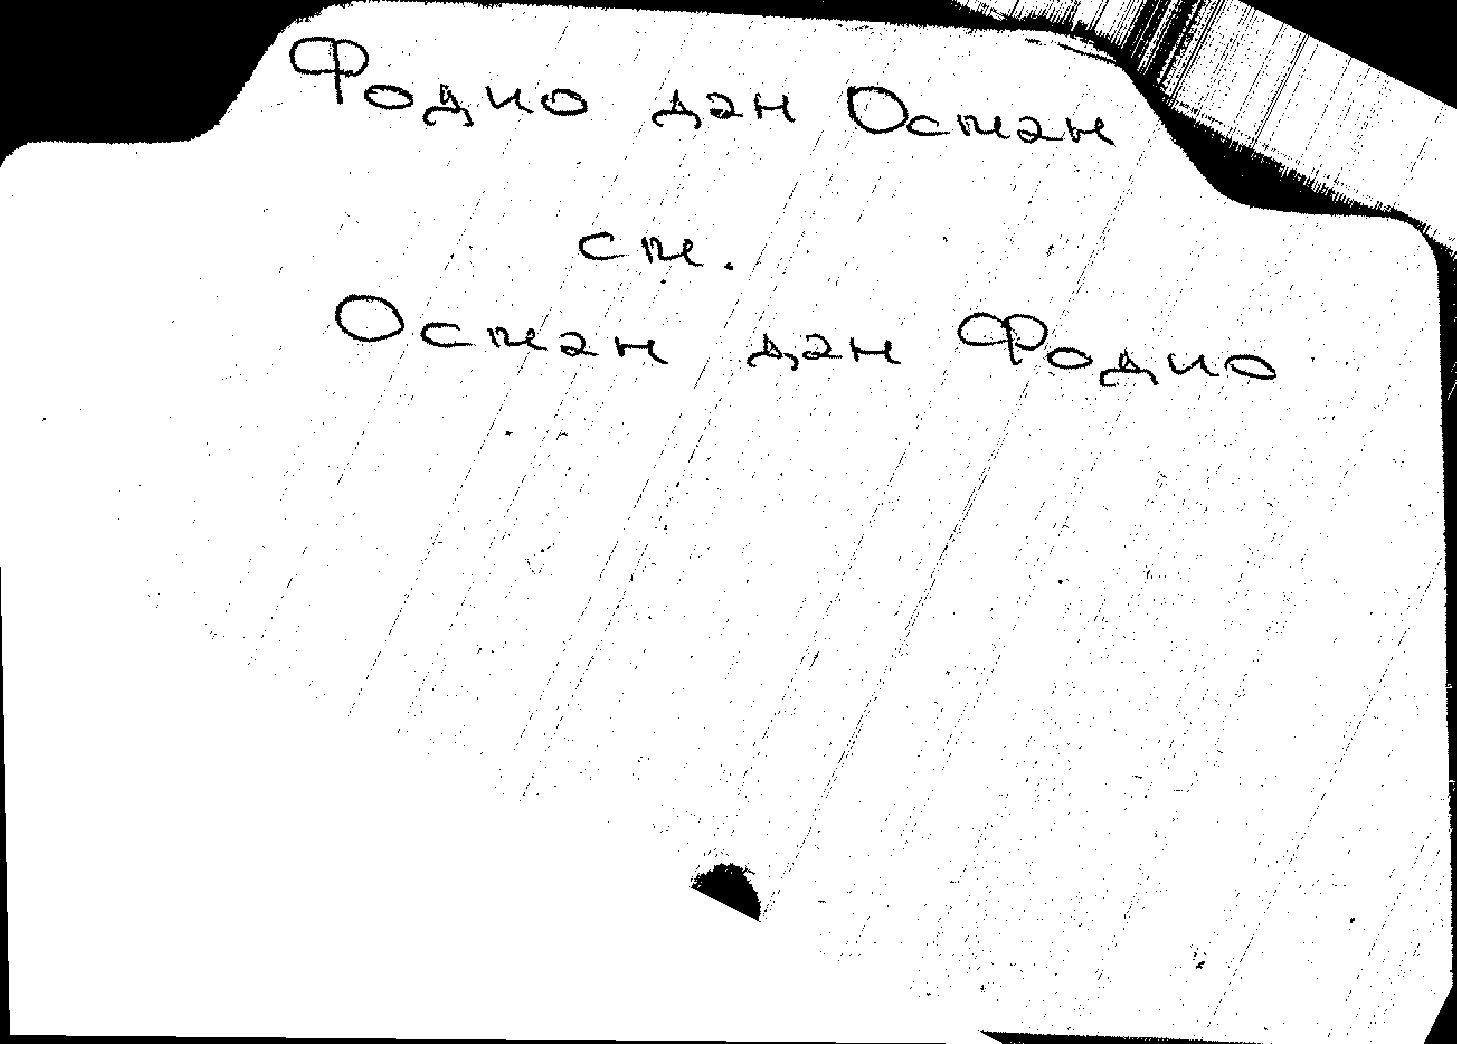 Фодио дан Осман
см.
Осман дан Фодио